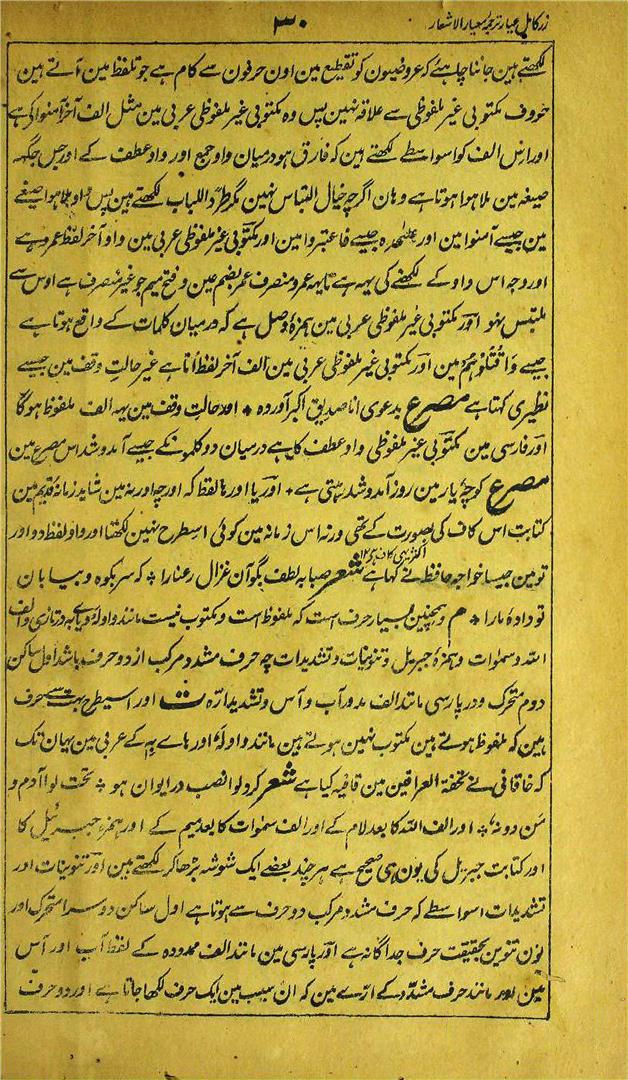 زر کامل عیار ترجمہ معیار الاشعار
۳۰
لکھتے ہین جاننا چاہیے کہ عروضیون کو تقطیع مین اون حرفون سے کام ہے جو تلفظ مین آتے ہین
حروف مکتوبی غیر ملفوظی سے علاقہ نہین پس وہ مکتوبی غیر ملفوظی عربی مین مثل الف آخر آمنوا کی ہے
اور اس الف کو اسواسطے لکھتے ہین کہ فارق ہو درمیان واو جمع اور واو عطف کے اور جس جگہہ
صیغہ مین ملا ہوا ہوتا ہے وہان اگرچہ خیال التباس نہین مگر طردًا للباب لکھتے ہین پس واو ملا ہوا صیغے
مین جیسے آمنوا مین اور علٰحدہ جیسے فاعتبروا مین اور مکتوبی غیر ملفوظی عربی مین واو آخر لفظ عمرو ہے
اور وجہ اس واو کے لکھنے کی یہہ ہے تا یہہ عمرو منصرف عمر بضم عین و فتح میم جو غیر منصرف ہے اوس سے
ملتبس نہو اور مکتوبی غیر ملفوظی عربی مین ہمزۂ وصل ہے کہ درمیان کلمات کے واقع ہوتا ہے
جیسے وَاقْتُلُوْہُمْ مین اور مکتوبی غیر ملفوظی عربی مین الف آخر لفظ انا ہے غیر حالت وقف مین جیسے
نظیری کہتا ہے مصرع بدعوی انا صدیق اکبر آوردہ * اور حالت وقف مین یہہ الف ملفوظ ہوگا
اور فارسی مین مکتوبی غیر ملفوظی واو عطف کا ہے درمیان دو کلمونکے جیسے آمد و شد اس مصرع مین
مصرع کوچۂ یار مین روز آمد و شد رہتی ہے * اور یا اور ہا لفظ کہ اور چہ اور نہ مین شاید زمانۂ قدیم مین
کتابت اس کاف کی بصورت کے تھی ورنہ اس زمانہ مین کوئی اسطرح نہین لکھتا اور واو لفظ دو اور
تو مین جیسا خواجہ حافظ نے کہا ہے شعر صبا بہ لطف بگو آن غزال رعنا را * کہ سر بکوہ و بیابان
تو دادۂ ما را * م و ہمچنین بسیار حرف است کہ ملفوظ است و مکتوب نیست مانند واو لہٗ و یای بہ در تازی و الف
اللہ و سموات و ہمزۂ جبریل و تنوینات و تشدیدات چہ حرف مشدد مرکب از دو حرف باشد اول ساکن
دوم متحرک و در پارسی مانند الف مد در آب و آس و تشدید ارّہ ت اور اسیطرح بہت سے حرف
ہین کہ ملفوظ ہوتے ہین مکتوب نہین ہوتے ہین مانند واو لہٗ اور یاے بِہٖ کے عربی مین یہان تک
کہ خاقانی نے تحفۃ العراقین مین قافیہ کیا ہے شعر کردہ لوا نصب در ایوان ہو * تحت لوا آدم و
من دونہٗ * اور الف اللہ کا بعد لام کے اور الف سموات کا بعد میم کے اور ہمزہ جبرئیل کا
اور کتابت جبریل کی یون ہی صحیح ہے ہرچند بعضے ایک شوشہ بڑھا کر لکھتے ہین اور تنوینات اور
تشدیدات اسواسطے کہ حرف مشدد مرکب دو حرف سے ہوتا ہے اول ساکن دوسرا متحرک اور
نون تنوین بحقیقت حرف جداگانہ ہے اور پارسی مین مانند الف ممدودہ کے لفظ آب اور آس
مین اور مانند حرف مشدد کے ارّے مین کہ ان سبب مین ایک حرف لکھا جاتا ہے اور دو حرف